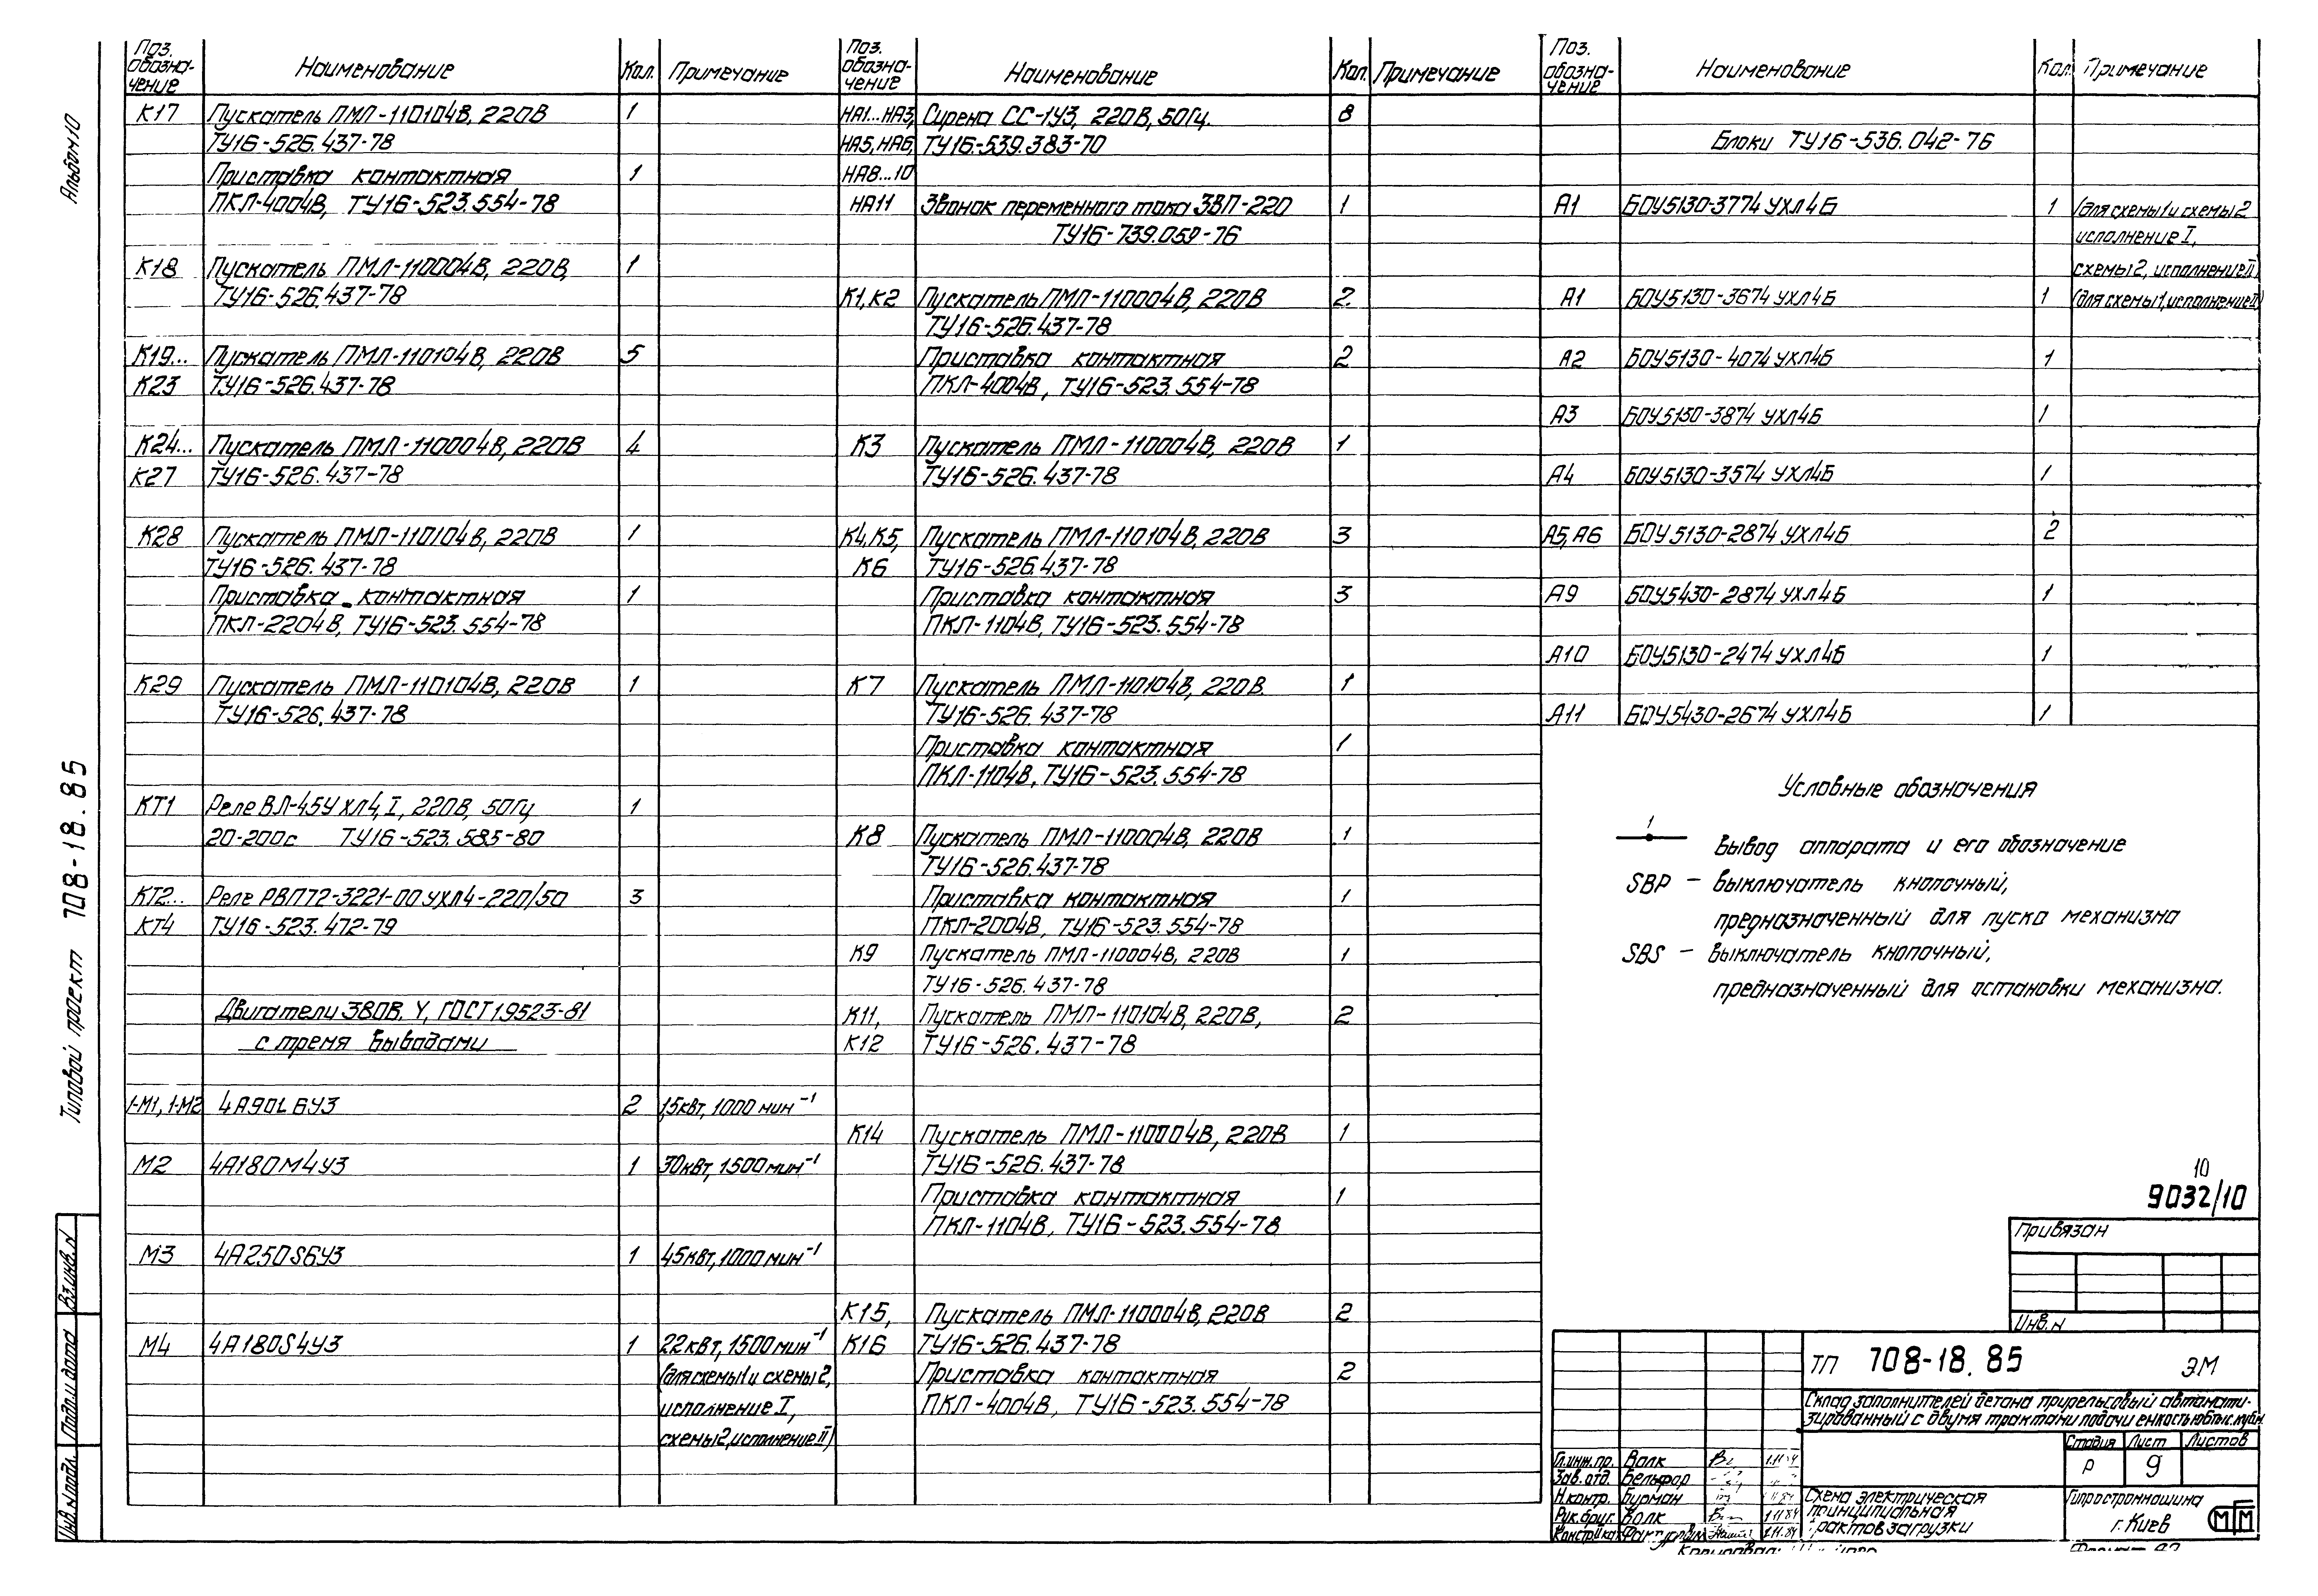 Альбом 10
Типовой проект 708-18.85
Поз. обозна- чение Наименование Кол. Примечание
К17 Пускатель ПМЛ-110104В, 220В 1
ТУ16-526.437-78
Приставка контактная 1
ПКЛ-4004В, ТУ16-523.554-78
К18 Пускатель ПМЛ-110004В, 220В, 1
ТУ16-526.437-78
К19... Пускатель ПМЛ-110104В, 220В 5
К23 ТУ16-526.437-78
К24... Пускатель ПМЛ-110004В, 220В 4
К27 ТУ16-526.437-78
К28 Пускатель ПМЛ-110104В, 220В 1
ТУ16-526.437-78
Приставка контактная 1
ПКЛ-2204В, ТУ16-523.554-78
К29 Пускатель ПМЛ-110104В, 220В 1
ТУ16-526.437-78
КТ1 Реле ВЛ-45УХЛ4, I, 220В, 50Гц 1
20-200с ТУ16-523.583-80
КТ2... Реле РВП72-3221-00УХЛ4-220/50 3
КТ4 ТУ16-523.472-79
Двигатели 380В, У, ГОСТ19523-81
с тремя выводами
1-М1, 1-М2 4А90L6У3 2 1,5кВт, 1000 мин⁻¹
М2 4А180М4У3 1 30кВт, 1500 мин⁻¹
М3 4А250S6У3 1 45кВт, 1000 мин⁻¹
М4 4А180S4У3 1 22кВт, 1500 мин⁻¹
(для схемы1 и схемы 2,
исполнение I,
схемы 2, исполнение II)
Поз. обозна- чение Наименование Кол. Примечание
НА1...НА3, Сирена СС-1У3, 220В, 50Гц. 8
НА5, НА6, ТУ16-539.383-70
НА8...10
НА11 Звонок переменного тока ЗВП-220 1
ТУ16-739.059-76
К1, К2 Пускатель ПМЛ-110004В, 220В 2
ТУ16-526.437-78
Приставка контактная 2
ПКЛ-4004В, ТУ16-523.554-78
К3 Пускатель ПМЛ-110004В, 220В 1
ТУ16-526.437-78
К4, К5, Пускатель ПМЛ-110104В, 220В 3
К6 ТУ16-526.437-78
Приставка контактная 3
ПКЛ-1104В, ТУ16-523.554-78
К7 Пускатель ПМЛ-110104В, 220В 1
ТУ16-526.437-78
Приставка контактная 1
ПКЛ-1104В, ТУ16-523.554-78
К8 Пускатель ПМЛ-110004В, 220В 1
ТУ16-526.437-78
Приставка контактная 1
ПКЛ-2004В, ТУ16-523.554-78
К9 Пускатель ПМЛ-110004В, 220В 1
ТУ16-526.437-78
К11, Пускатель ПМЛ-110104В, 220В, 2
К12 ТУ16-526.437-78
К14 Пускатель ПМЛ-110004В, 220В 1
ТУ16-526.437-78
Приставка контактная 1
ПКЛ-1104В, ТУ16-523.554-78
К15, Пускатель ПМЛ-110004В, 220В 2
К16 ТУ16-526.437-78
Приставка контактная 2
ПКЛ-4004В, ТУ16-523.554-78
Поз. обозна- чение Наименование Кол. Примечание
Блоки ТУ16-536.042-76
А1 БОУ5130-3774УХЛ4Б 1 (для схемы1 и схемы 2
исполнение I,
схемы 2, исполнение II)
А1 БОУ5130-3674УХЛ4Б 1 (для схемы 1, исполнение II)
А2 БОУ5130-4074УХЛ4Б 1
А3 БОУ5130-3874УХЛ4Б 1
А4 БОУ5130-3574УХЛ4Б 1
А5, А6 БОУ5130-2874УХЛ4Б 2
А9 БОУ5430-2874УХЛ4Б 1
А10 БОУ5130-2474УХЛ4Б 1
А11 БОУ5430-2674УХЛ4Б 1
Условные обозначения
1
Вывод аппарата и его обозначение
SBP – выключатель кнопочный,
предназначенный для пуска механизма
SBS – выключатель кнопочный,
предназначенный для остановки механизма.
10
9032/10
Привязан
Инв.N
ТП 708-18.85 ЭМ
Склад заполнителей бетона прирельсовый автомати-
зированный с двумя трактами подачи емкостью
Стадия Лист Листов
Р 9
Гл.инж.пр. Волк
Зав.отд. Бельфор
Н.контр. Бурман
Рук.бриг. Волк 1.11.84
Схема электрическая
принципиальная
трактов загрузки
Гипростроммашина
г. Киев
МГМ
Взинв.N
Подп.и дата
Инв.N подл.